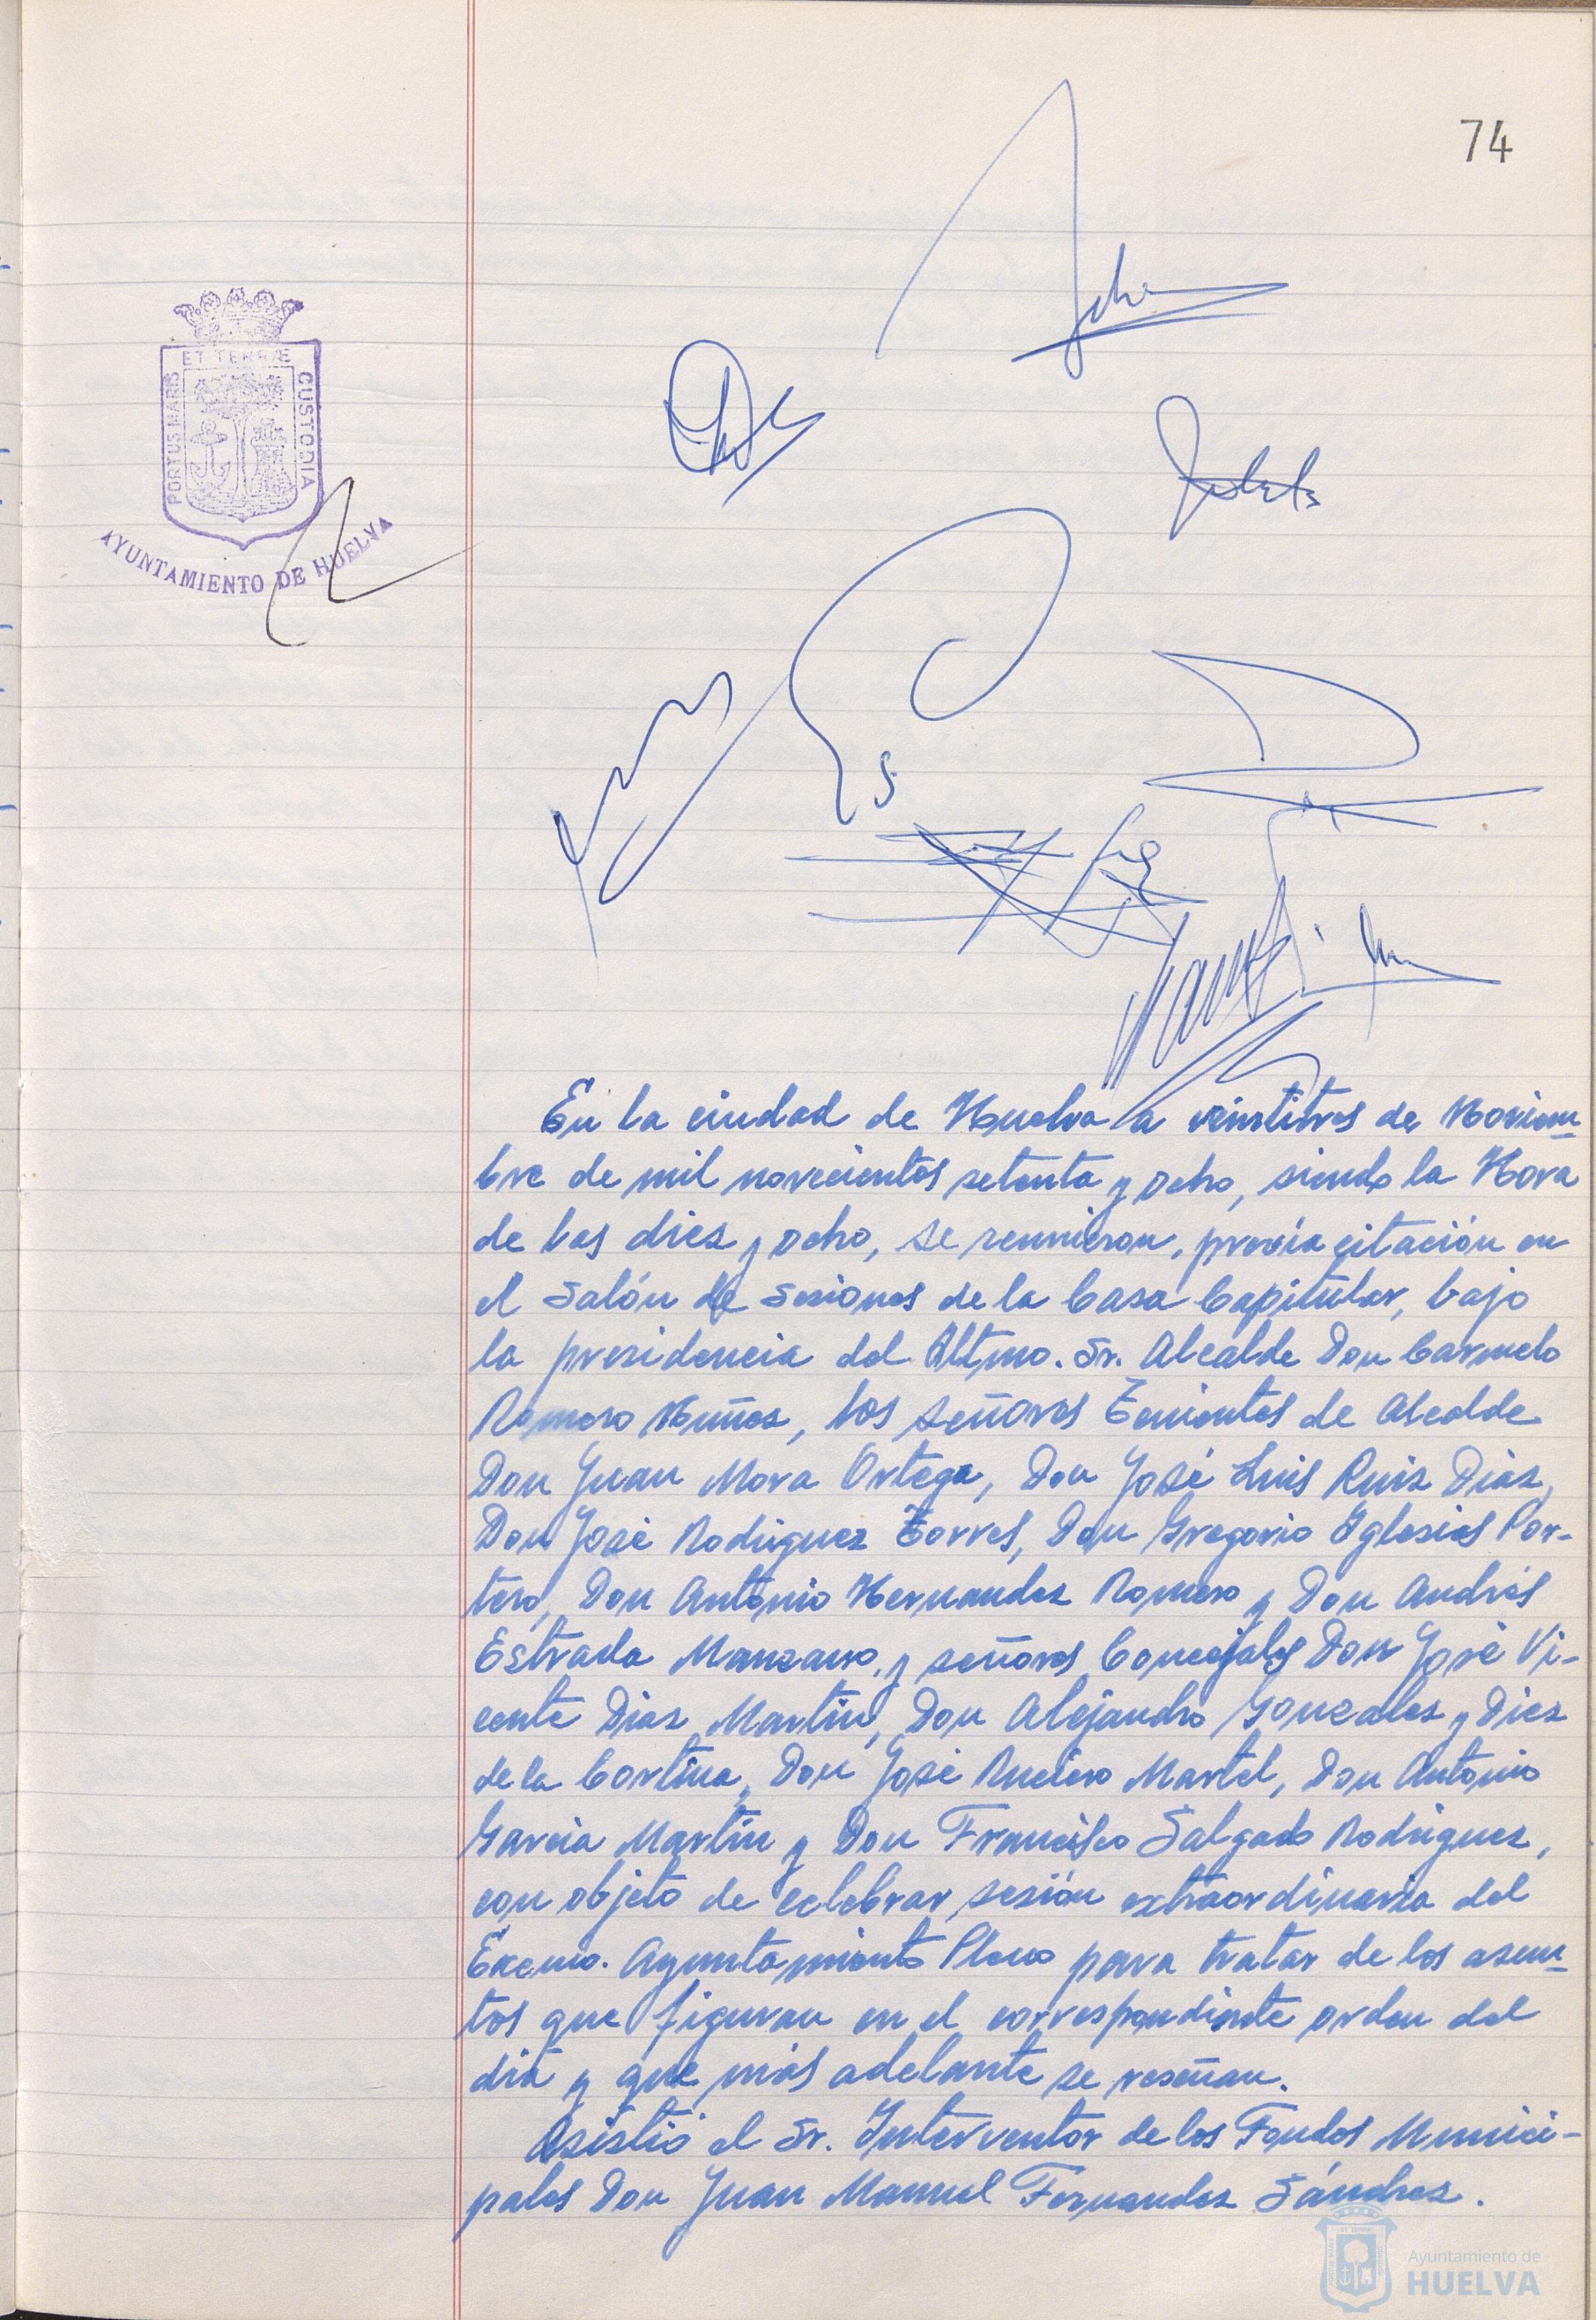 74
ET TERRÆ
PORTUS MARIS
CUSTODIA
AYUNTAMIENTO DE HUELVA
En la ciudad de Huelva a veintitres de Noviem-
bre de mil novecientos setenta y ocho, siendo la Hora
de las diez y ocho, se reunieron, previa citación en
el Salón de Sesiones de la Casa Capitular, bajo
la presidencia del Iltmo. Sr. Alcalde Don Carmelo
Romero Nuñez, los señores Tenientes de Alcalde
Don Juan Mora Ortega, Don José Luis Ruiz Diaz,
Don José Rodriguez Torres, Don Gregorio Iglesias Por-
tero, Don Antonio Hernandez Romero y Don Andrés
Estrada Manzano, y señores Concejales Don José Vi-
cente Diaz Martin, Don Alejandro Gonzalez y Diez
de la Cortina, Don José Ruciero Martel, Don Antonio
Garcia Martin y Don Francisco Salgado Rodriguez,
con objeto de celebrar sesión extraordinaria del
Excmo. Ayuntamiento Pleno para tratar de los asun-
tos que figuran en el correspondiente orden del
dia y que más adelante se reseñan.
Asistió el Sr. Interventor de los Fondos Munici-
pales Don Juan Manuel Fernandez Sánchez.
Ayuntamiento de
HUELVA